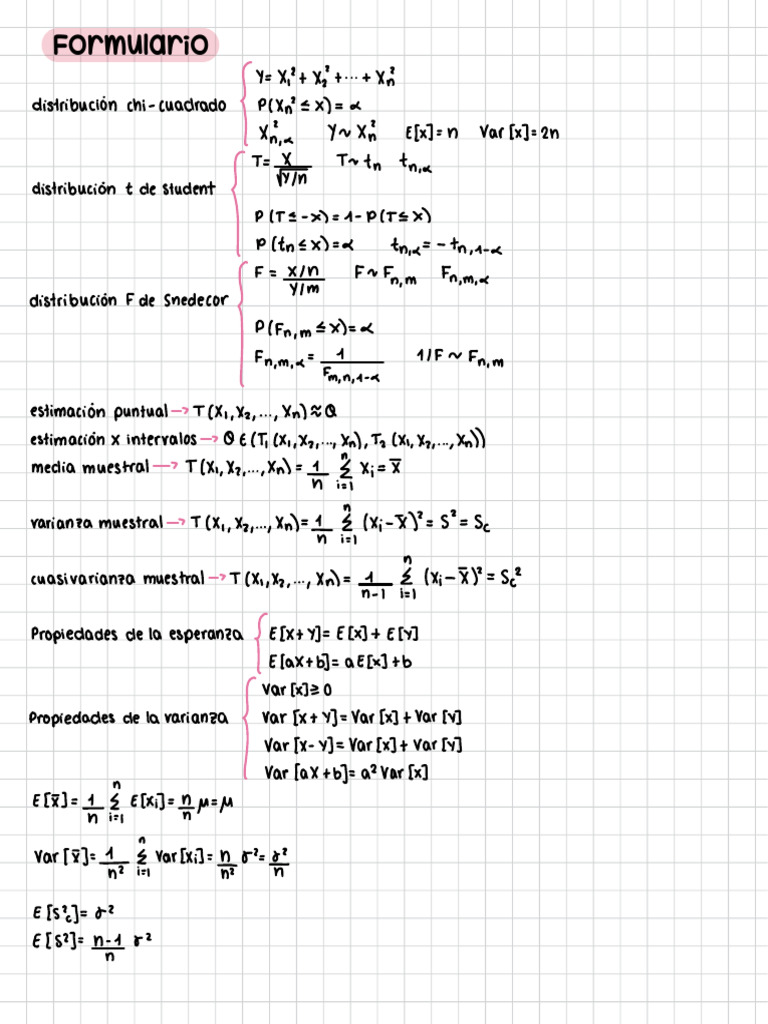 Formulario
Y = X₁² + X₂² + ··· + Xₙ²
distribución chi-cuadrado
P(Xₙ² ≤ x) = α
X²ₙ,α Y ~ Xₙ² E[x] = n Var[x] = 2n
T = X / √Y/n T ~ tₙ tₙ,α
distribución t de Student
P(T ≤ -x) = 1 - P(T ≤ x)
P(tₙ ≤ x) = α tₙ,α = -tₙ,1-α
F = X/n / Y/m F ~ Fn,m Fn,m,α
distribución F de Snedecor
P(Fn,m ≤ x) = α
Fn,m,α = 1 / Fm,n,1-α 1/F ~ Fn,m
estimación puntual → T(X₁, X₂, ..., Xn) ≈ θ
estimación x intervalos → θ ∈ (T₁(X₁, X₂, ..., Xn), T₂(X₁, X₂, ..., Xn))
media muestral → T(X₁, X₂, ..., Xn) = 1/n Σ i=1 n Xi = X̄
varianza muestral → T(X₁, X₂, ..., Xn) = 1/n Σ i=1 n (Xi - X̄)² = S² = Sc
cuasivarianza muestral → T(X₁, X₂, ..., Xn) = 1/n-1 Σ i=1 n (Xi - X̄)² = Sc²
Propiedades de la esperanza E[X+Y] = E[X] + E[Y]
E[aX+b] = aE[X] + b
Var[x] ≥ 0
Propiedades de la varianza Var[X+Y] = Var[X] + Var[Y]
Var[X-Y] = Var[X] + Var[Y]
Var[aX+b] = a² Var[X]
E[X̄] = 1/n Σ i=1 n E[Xi] = n/n μ = μ
Var[X̄] = 1/n² Σ i=1 n Var[Xi] = n/n² σ² = σ²/n
E[S²c] = σ²
E[S²] = n-1/n σ²